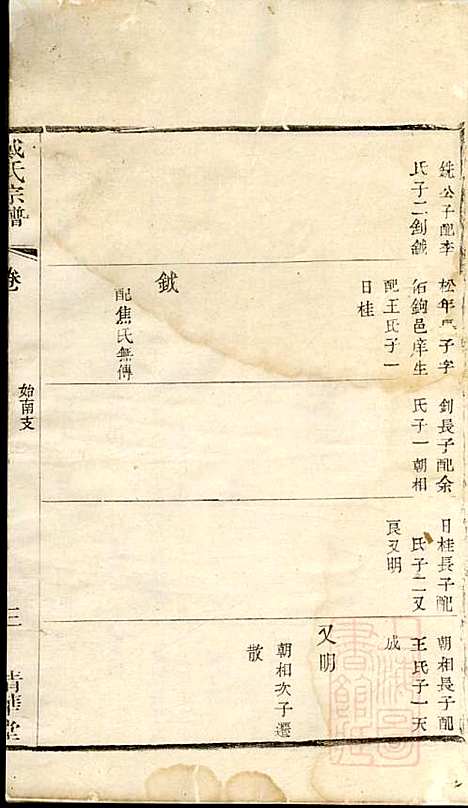 銑公子配李
氏子二釗鉞
松年長子字
佑鉤邑庠生
配王氏子一
日桂
鉞
配焦氏無傳
釗長子配余
氏子一朝相
日桂長子配
氏子二又
良又明
朝相長子配
王氏子一天
成
又明
朝相次子遷
散
戴氏宗譜
卷
始南支
三
清華堂